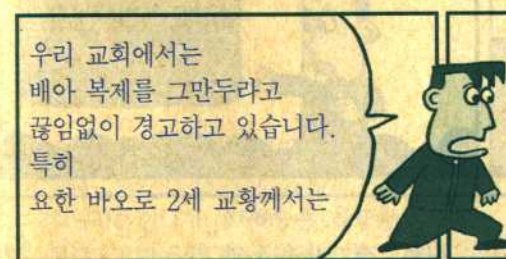 우리 교회에서는
배아 복제를 그만두라고
끊임없이 경고하고 있습니다.
특히
요한 바오로 2세 교황께서는